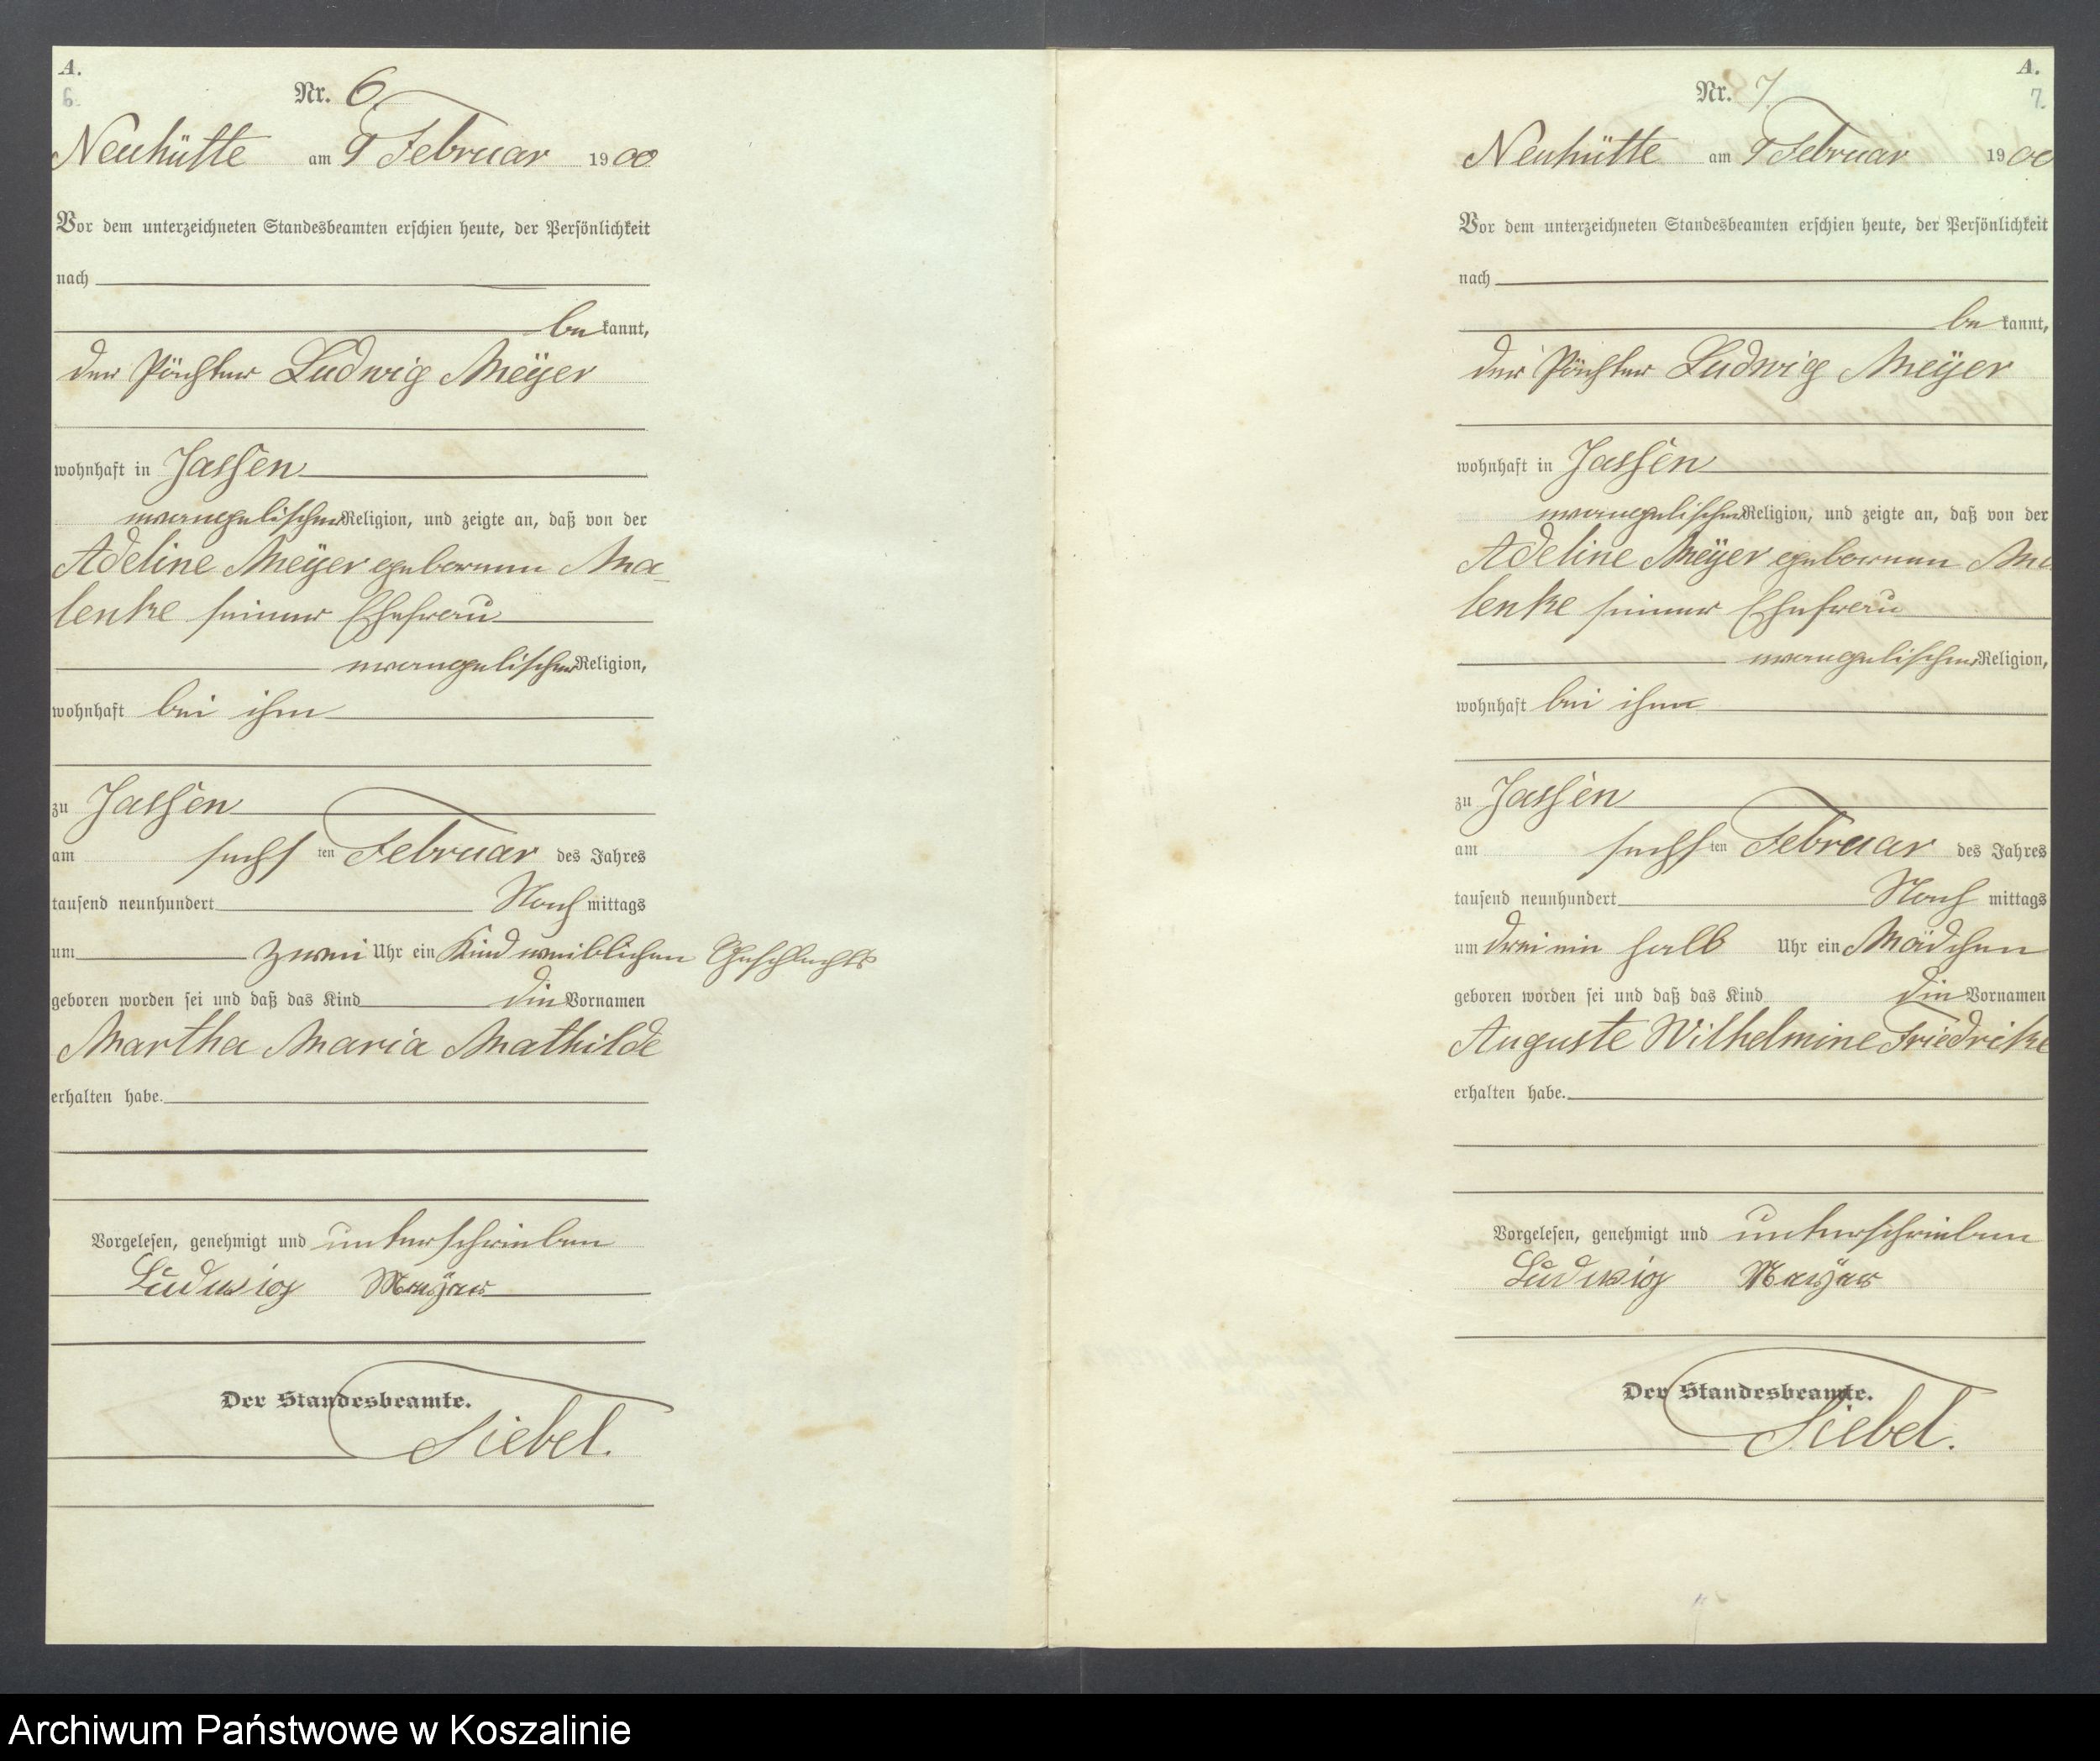 A.
6.
Nr. 6
Neuhütte am 9 Februar 1900
Vor dem unterzeichneten Standesbeamten erschien heute, der Persönlichkeit
nach
be kannt,
der Pächter Ludwig Meÿer
wohnhaft in Jassen
evangelischer Religion, und zeigte an, daß von der
Adeline Meÿer geborenen Ma-
lenke seiner Ehefrau
evangelischer Religion,
wohnhaft bei ihm
zu Jassen
am sechsten Februar des Jahres
tausend neunhundert Nach mittags
um zwei Uhr ein Kind weiblichen Geschlechts
geboren worden sei und daß das Kind die Vornamen
Martha Maria Mathilde
erhalten habe.
Vorgelesen, genehmigt und unterschrieben
Ludwig Meÿer
Der Standesbeamte.
Siebel.
A.
7.
Nr. 7.
Neuhütte am 9 Februar 1900
Vor dem unterzeichneten Standesbeamten erschien heute, der Persönlichkeit
nach
be kannt,
der Pächter Ludwig Meÿer
wohnhaft in Jassen
evangelischer Religion, und zeigte an, daß von der
Adeline Meÿer geborenen Ma
lenke seiner Ehefrau
evangelischer Religion,
wohnhaft bei ihm
zu Jassen
am sechsten Februar des Jahres
tausend neunhundert Nach mittags
um drei ein halb Uhr ein Mädchen
geboren worden sei und daß das Kind die Vornamen
Auguste Wilhelmine Friedrike
erhalten habe.
Vorgelesen, genehmigt und unterschrieben
Ludwig Meÿer
Der Standesbeamte.
Siebel.
Archiwum Państwowe w Koszalinie